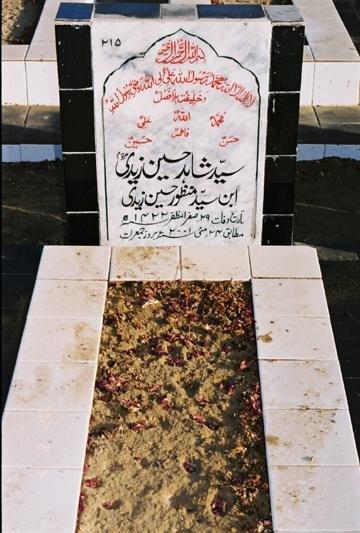 ۲۱۵
بسم الله الرحمن الرحيم
لا اله الا الله محمد رسول الله علی ولی الله وصی رسول الله
وخليفته بلا فصل
الله
محمد علی
فاطمہ
حسن حسین
سید شاہد حسین زیدی
ابن سید منظور حسین زیدی
تاریخ وفات ۲۹ صفر المظفر ۱۴۲۲ ھ
مطابق ۲۴ مئی ۲۰۰۱ بروز جمعرات